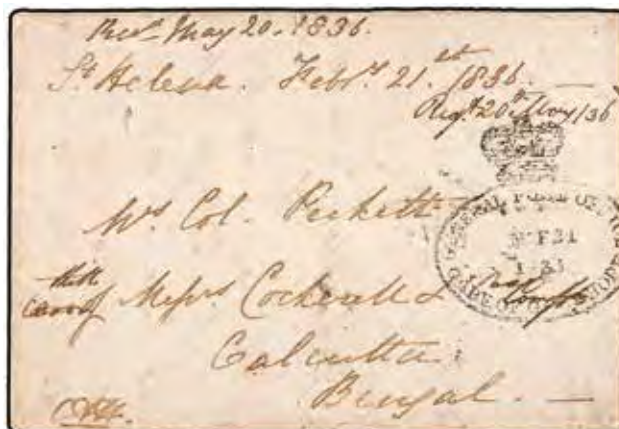 Recd. May 20. 1836.
St Helena. Feby. 21.st 1836. —
20th May/36
Mrs Col. Peckett
GENERAL POST OFFICE
CAPE OF GOOD HOPE
care of Messrs Cockerell &
Calcutta
Bengal. —